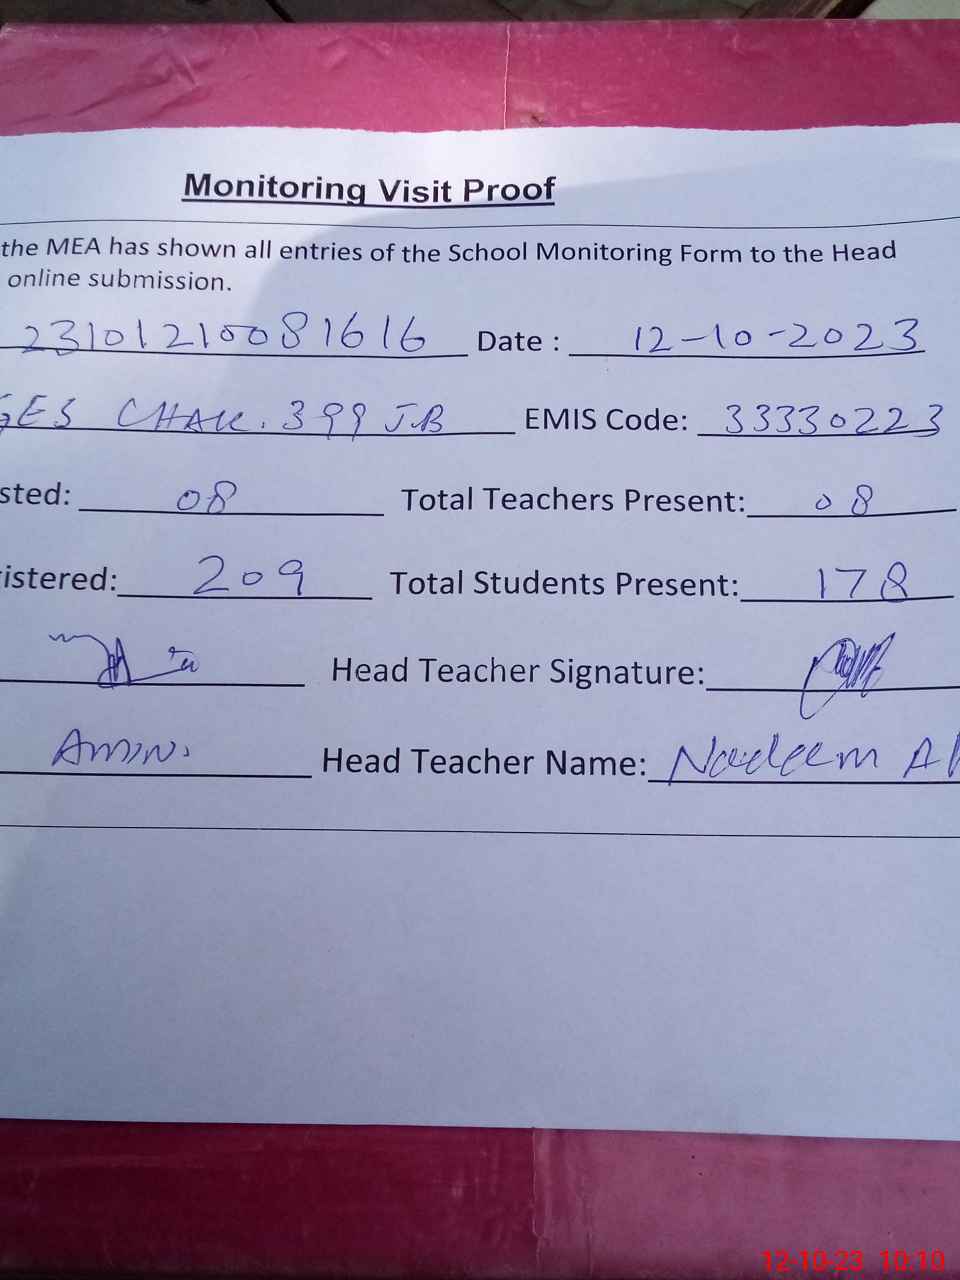 Monitoring Visit Proof
the MEA has shown all entries of the School Monitoring Form to the Head
online submission.
23101210081616 Date : 12-10-2023
GES CHAK. 399 JB EMIS Code: 33330223
sted: 08 Total Teachers Present: 08
istered: 209 Total Students Present: 178
Head Teacher Signature:
Amin. Head Teacher Name: Nadeem A
12-10-23 10:10